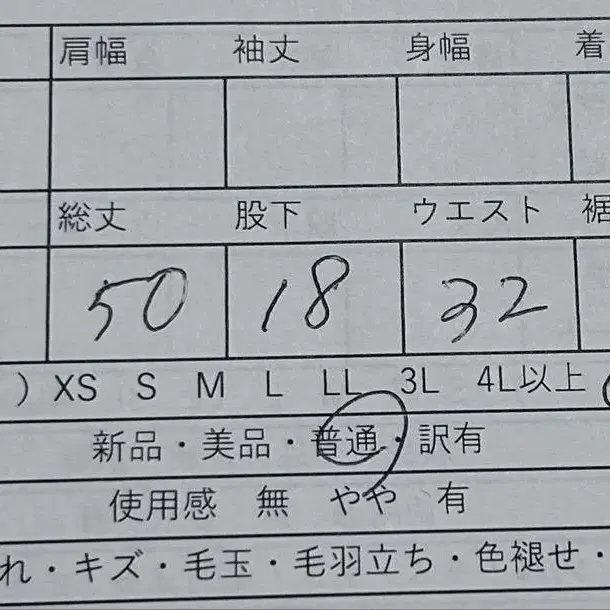 肩幅 袖丈 身幅 着
総丈 股下 ウエスト 裾
50 18 32
) XS S M L LL 3L 4L以上
新品・美品・普通・訳有
使用感 無 やや 有
れ・キズ・毛玉・毛羽立ち・色褪せ・